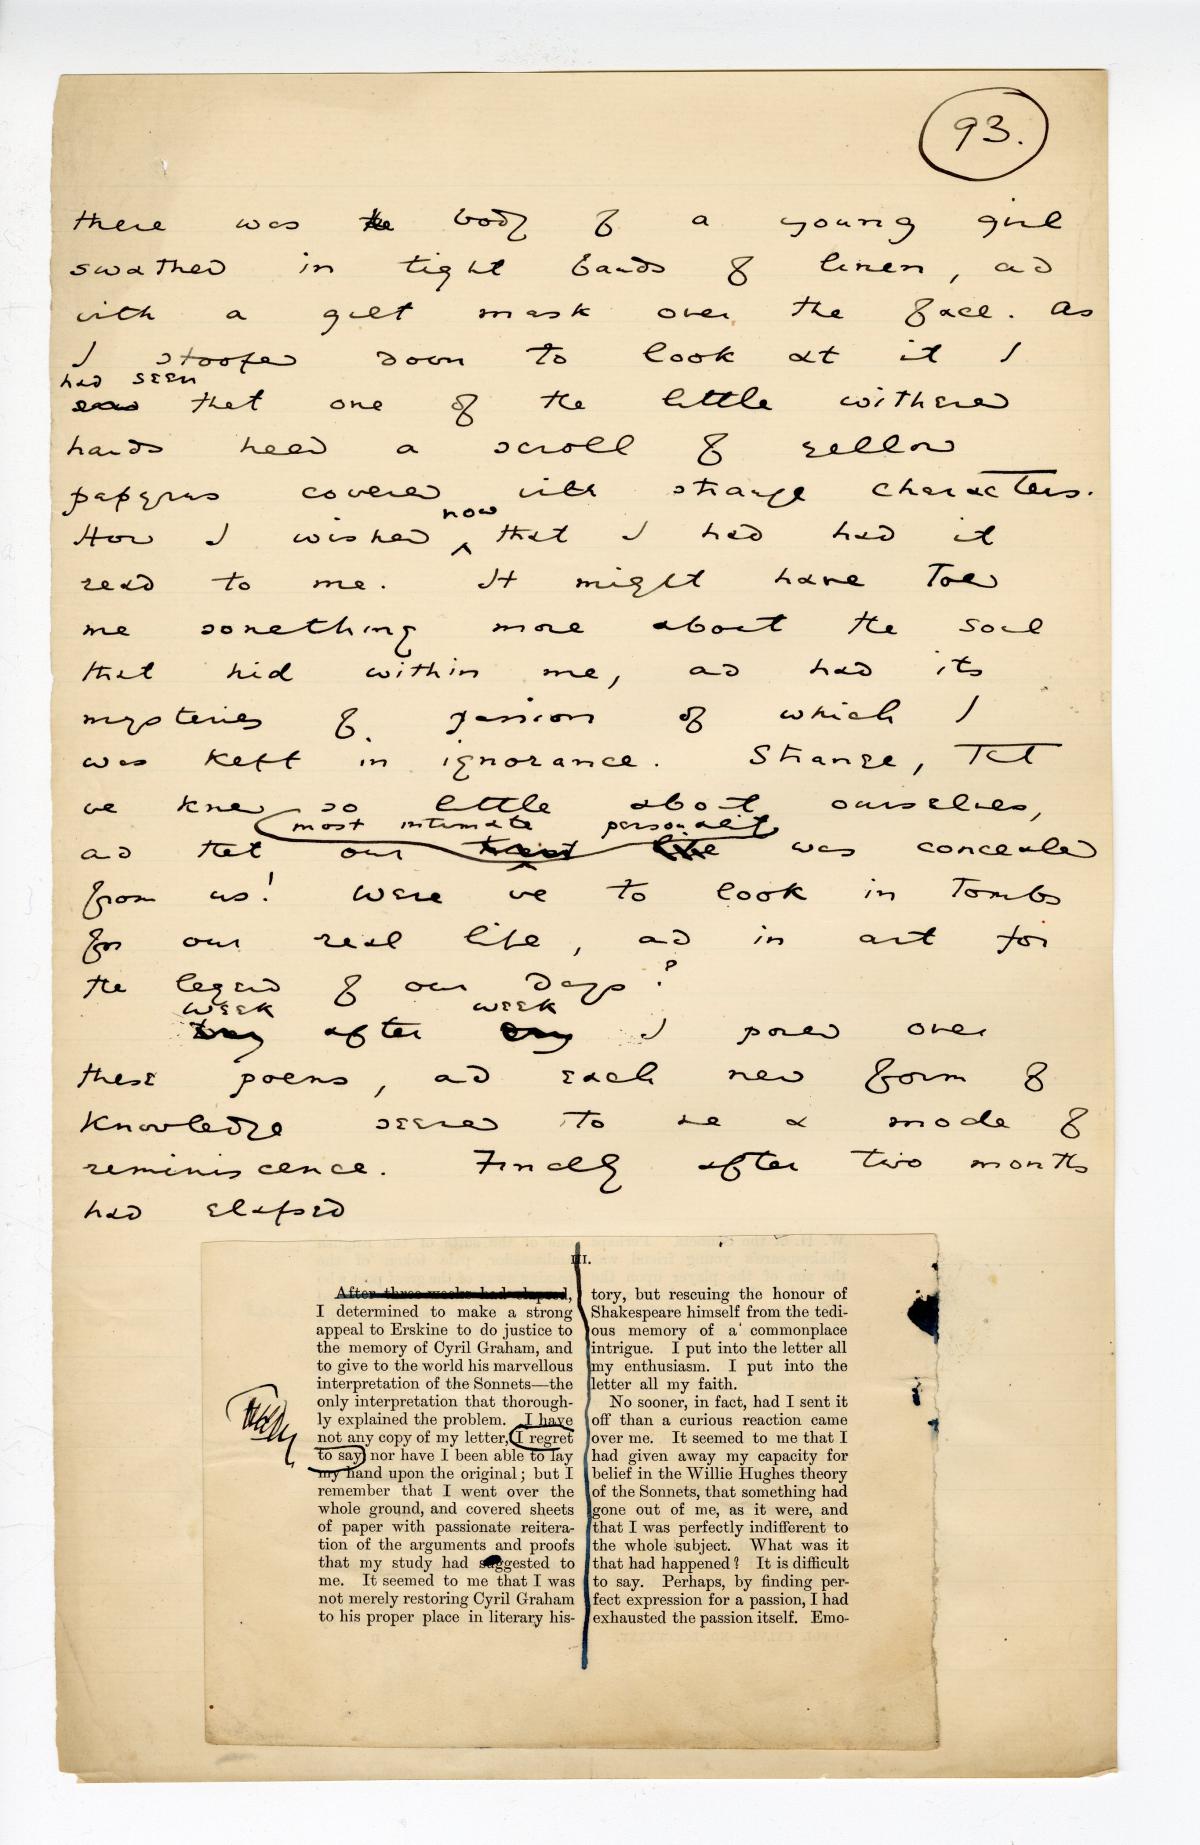 93.
there was the body of a young girl
swathed in tight bands of linen, and
with a gilt mask over the face. As
I stooped down to look at it I
had seen
saw that one of the little withered
hands held a scroll of yellow
papyrus covered with strange characters.
now
How I wished ^ that I had had it
read to me. It might have told
me something more about the soul
that hid within me, and had its
mysteries of passion of which I
was kept in ignorance. Strange, that
we knew so little about ourselves,
most intimate personality
and that our life was concealed
from us! Were we to look in tombs
for our real life, and in art for
the legend of our days?
week week
Day after day I pored over
these poems, and each new form of
knowledge seemed to me a mode of
reminiscence. Finally after two months
had elapsed
III.
After three weeks had elapsed,
I determined to make a strong
appeal to Erskine to do justice to
the memory of Cyril Graham, and
to give to the world his marvellous
interpretation of the Sonnets—the
only interpretation that thorough-
ly explained the problem. I have
not any copy of my letter, I regret
to say, nor have I been able to lay
my hand upon the original; but I
remember that I went over the
whole ground, and covered sheets
of paper with passionate reitera-
tion of the arguments and proofs
that my study had suggested to
me. It seemed to me that I was
not merely restoring Cyril Graham
to his proper place in literary his-
tory, but rescuing the honour of
Shakespeare himself from the tedi-
ous memory of a commonplace
intrigue. I put into the letter all
my enthusiasm. I put into the
letter all my faith.
No sooner, in fact, had I sent it
off than a curious reaction came
over me. It seemed to me that I
had given away my capacity for
belief in the Willie Hughes theory
of the Sonnets, that something had
gone out of me, as it were, and
that I was perfectly indifferent to
the whole subject. What was it
that had happened? It is difficult
to say. Perhaps, by finding per-
fect expression for a passion, I had
exhausted the passion itself. Emo-